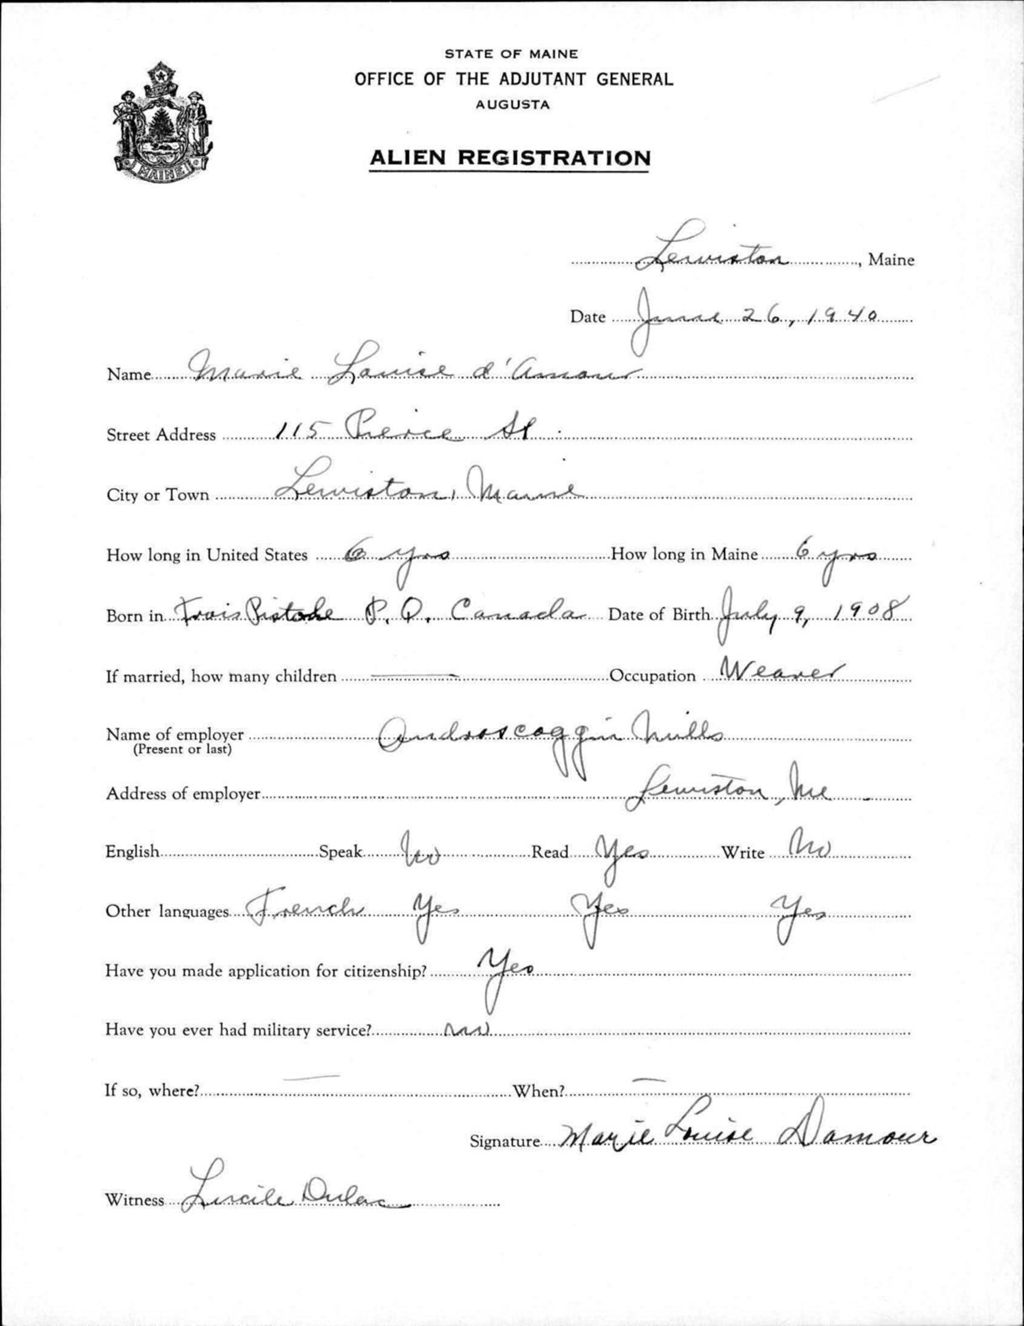 STATE OF MAINE
OFFICE OF THE ADJUTANT GENERAL
AUGUSTA
ALIEN REGISTRATION
MAINE
Lewiston, Maine
Date June 26, 1940
Name Marie Louise d'Amour
Street Address 115 Pierce St.
City or Town Lewiston, Maine
How long in United States 6 yrs How long in Maine 6 yrs
Born in Trois Pistole P.Q. Canada Date of Birth July 9, 1908
If married, how many children — Occupation Weaver
Name of employer Androscoggin Mills
(Present or last)
Address of employer Lewiston, Me
English Speak No Read Yes Write No
Other languages French Yes Yes Yes
Have you made application for citizenship? Yes
Have you ever had military service? no
If so, where? — When? —
Signature Marie Louise Damour
Witness Lucile Dulac